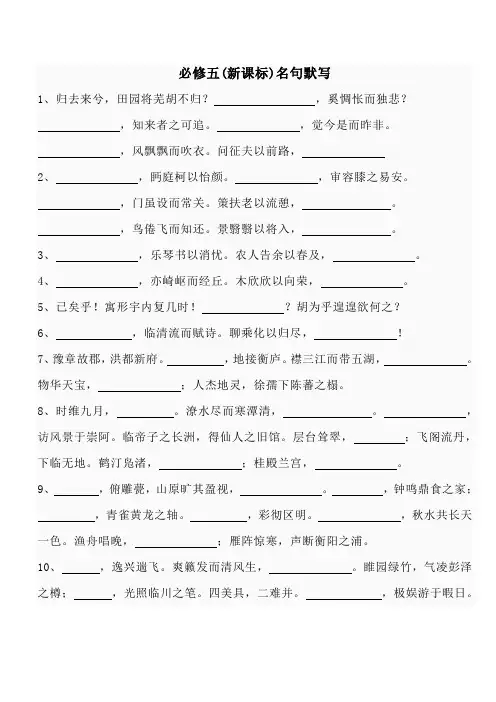 必修五(新课标)名句默写
1、归去来兮，田园将芜胡不归？＿＿＿＿＿＿，奚惆怅而独悲？
＿＿＿＿＿，知来者之可追。＿＿＿＿＿，觉今是而昨非。
＿＿＿＿＿，风飘飘而吹衣。问征夫以前路，＿＿＿＿＿
2、＿＿＿＿＿，眄庭柯以怡颜。＿＿＿＿＿，审容膝之易安。
＿＿＿＿＿，门虽设而常关。策扶老以流憩，＿＿＿＿＿。
＿＿＿＿＿，鸟倦飞而知还。景翳翳以将入，＿＿＿＿＿。
3、＿＿＿＿＿，乐琴书以消忧。农人告余以春及，＿＿＿＿＿。
4、＿＿＿＿＿，亦崎岖而经丘。木欣欣以向荣，＿＿＿＿＿。
5、已矣乎！寓形宇内复几时！＿＿＿＿＿？胡为乎遑遑欲何之？
6、＿＿＿＿＿，临清流而赋诗。聊乘化以归尽，＿＿＿＿＿！
7、豫章故郡，洪都新府。＿＿＿＿，地接衡庐。襟三江而带五湖，＿＿＿＿＿。
物华天宝，＿＿＿＿＿；人杰地灵，徐孺下陈蕃之榻。
8、时维九月，＿＿＿＿。潦水尽而寒潭清，＿＿＿＿＿。＿＿＿＿＿，
访风景于崇阿。临帝子之长洲，得仙人之旧馆。层台耸翠，＿＿＿；飞阁流丹，
下临无地。鹤汀凫渚，＿＿＿＿＿；桂殿兰宫，＿＿＿＿＿。
9、＿＿＿，俯雕甍，山原旷其盈视，＿＿＿＿＿。＿＿＿，钟鸣鼎食之家；
＿＿＿＿，青雀黄龙之轴。＿＿＿＿，彩彻区明。＿＿＿＿＿，秋水共长天
一色。渔舟唱晚，＿＿＿＿＿；雁阵惊寒，声断衡阳之浦。
10、＿＿＿，逸兴遄飞。爽籁发而清风生，＿＿＿＿＿。睢园绿竹，气凌彭泽
之樽；＿＿＿，光照临川之笔。四美具，二难并。＿＿＿＿＿，极娱游于暇日。